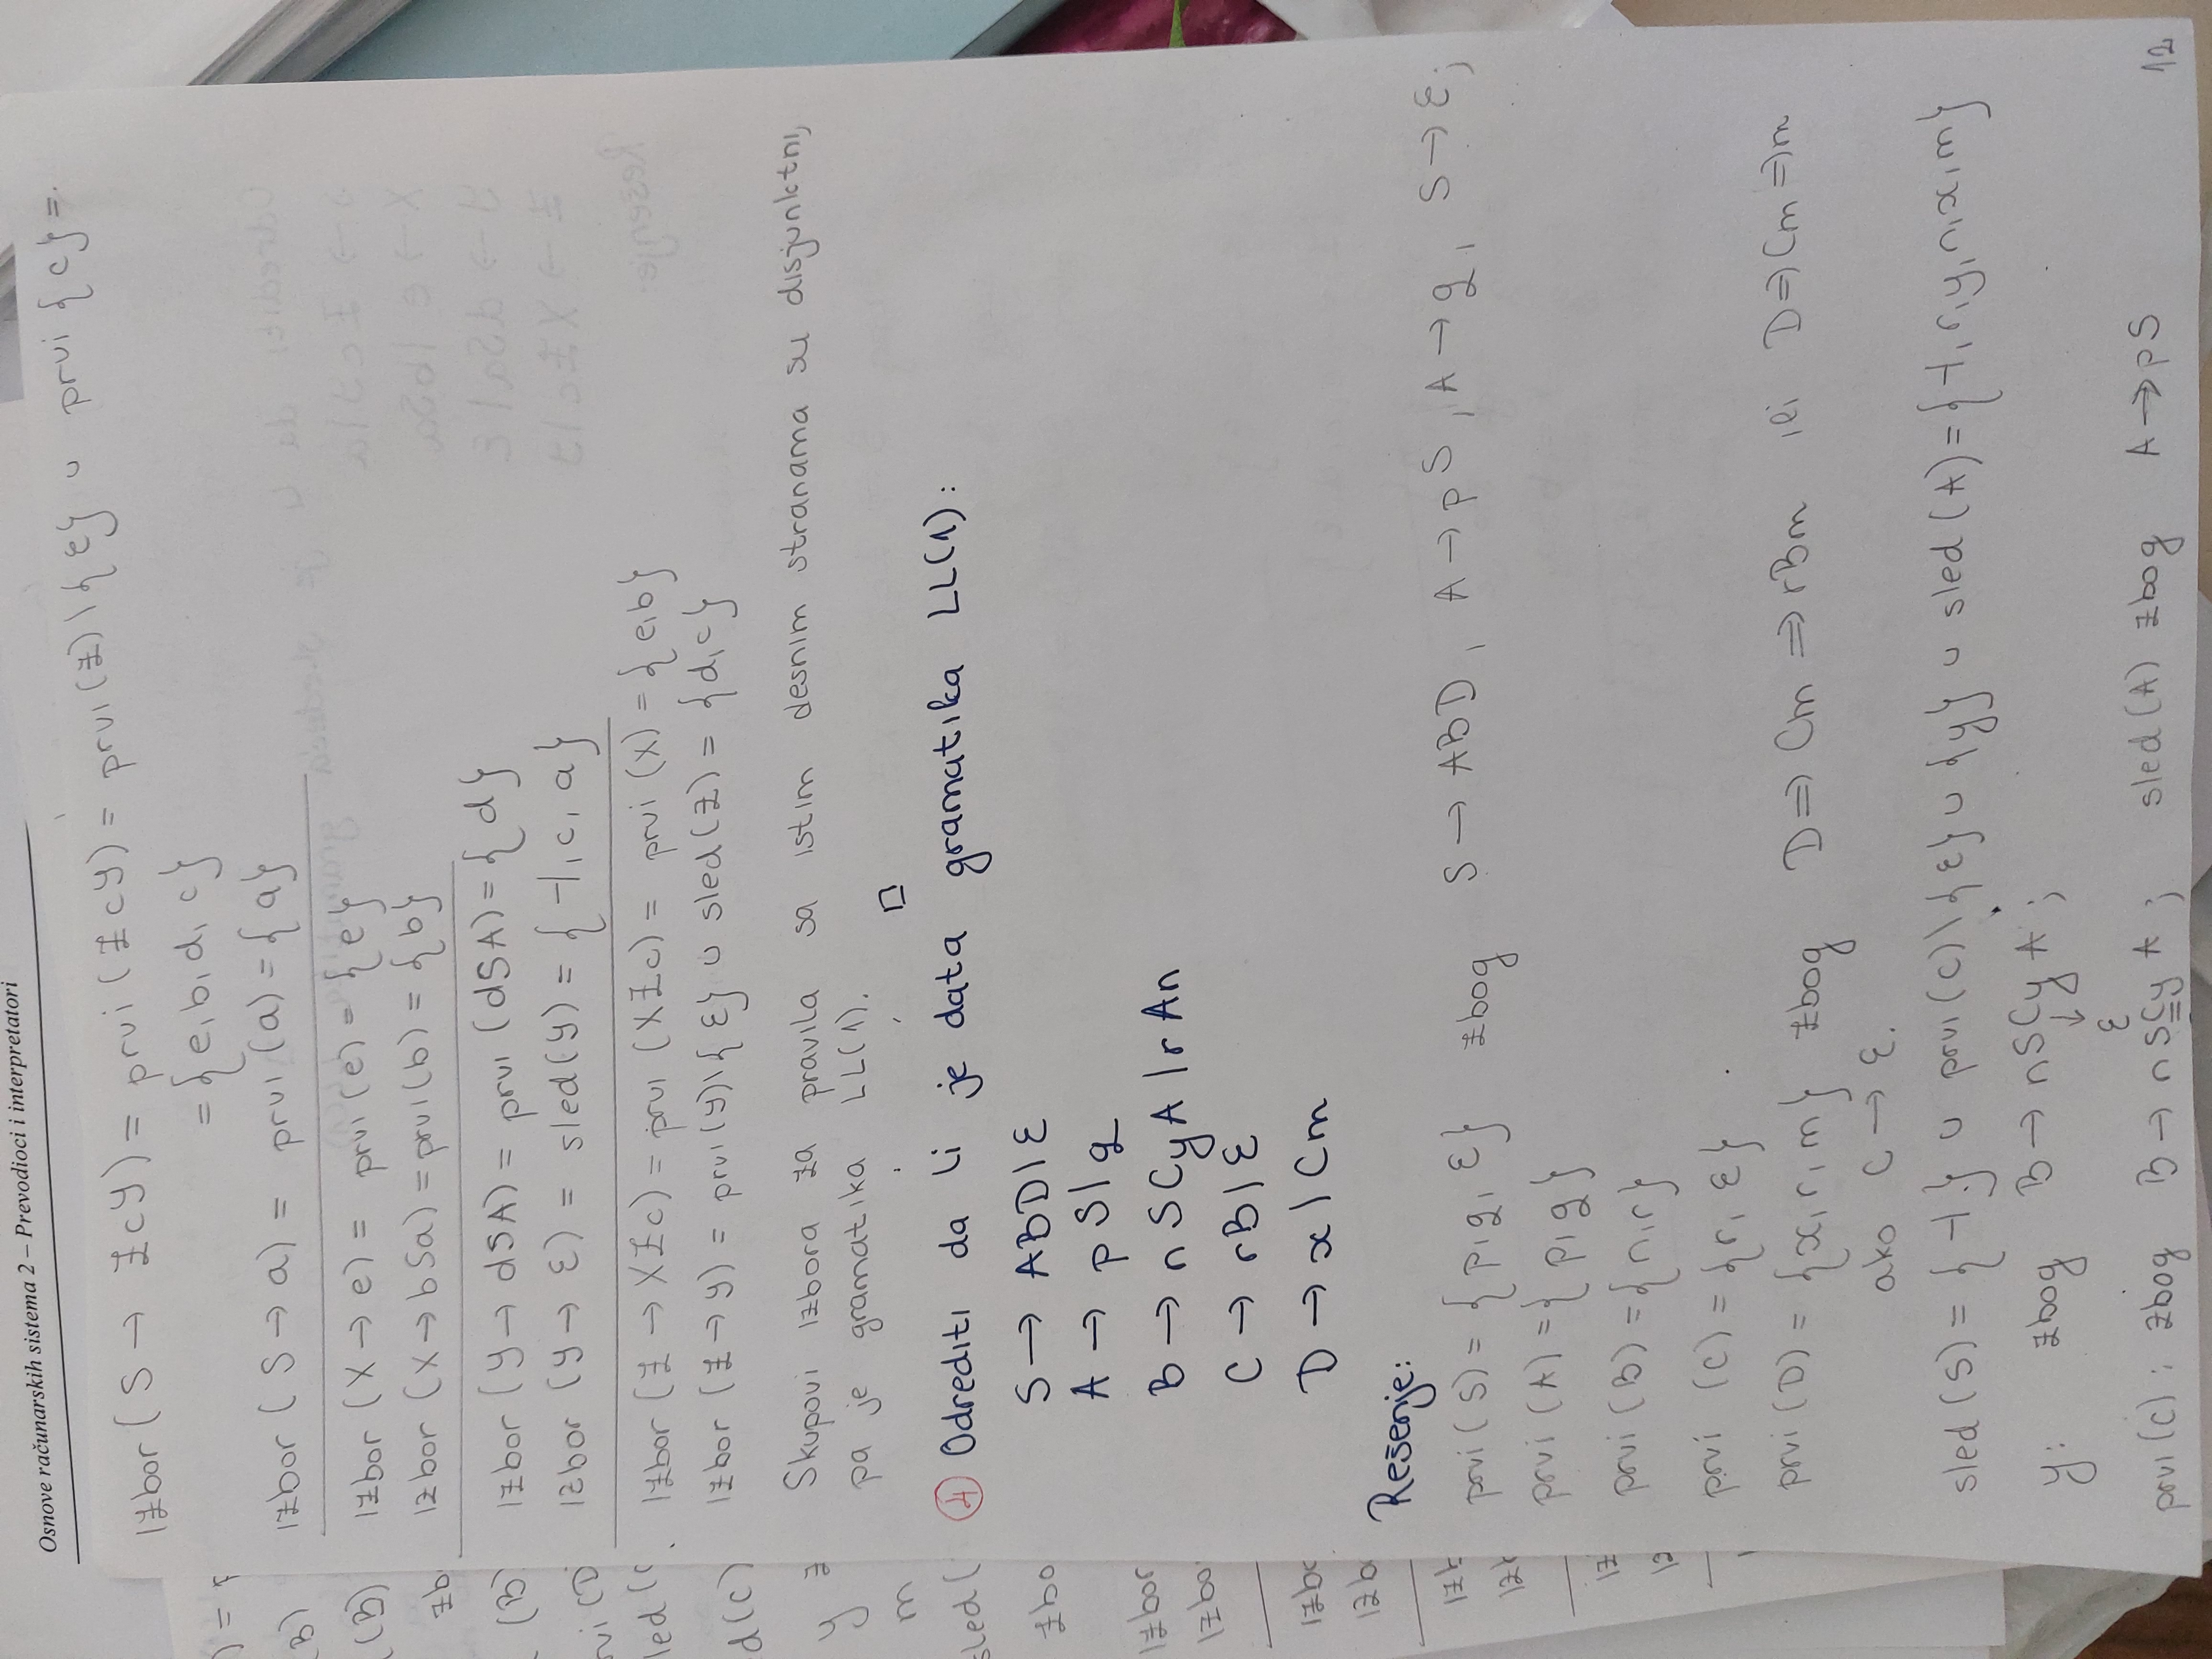 Osnove računarskih sistema 2 – Prevodioci i interpretatori
Izbor (S → ZcY) = prvi (ZcY) = prvi(Z) \ {ε} ∪ prvi {c} =
= {e, b, d, c}
Izbor (S → a) = prvi (a) = {a}
Izbor (X → e) = prvi (e) = {e}
Izbor (X → bSa) = prvi(b) = {b}
Izbor (Y → dSA) = prvi (dSA) = {d}
Izbor (Y → ε) = sled(Y) = {⊣, c, a}
Izbor (Z → XZc) = prvi (XZc) = prvi (X) = {e,b}
Izbor (Z → Y) = prvi(Y) \ {ε} ∪ sled(Z) = {d, c}
Skupovi izbora za pravila sa istim desnim stranama su disjunktni,
pa je gramatika LL(1).
□
4 Odrediti da li je data gramatika LL(1):
S → ABD | ε
A → pS | q
B → nSCyA | rAn
C → rB | ε
D → x | Cm
Rešenje:
prvi (S) = {p, q, ε} zbog S → ABD, A → pS, A → q, S → ε;
prvi (A) = {p, q}
prvi (B) = {n, r}
prvi (C) = {r, ε}
prvi (D) = {x, r, m} zbog D ⇒ Cm ⇒ rBm ili D ⇒ Cm ⇒ m
ako C → ε.
sled (S) = {⊣} ∪ prvi(C) \ {ε} ∪ {y} ∪ sled (A) = {⊣, r, y, n, x, m}
y: zbog B → nSCyA;
↓
ε
prvi (C): zbog B → nSCyA; sled (A) zbog A → pS
12
) = p
(B)
(B)
zb
(B)
vi (D
led (
d (C)
y z
m
sled (
zbo
Izbor
Izbo
Izbo
Izb
Izb
Izb
Iz
Iz